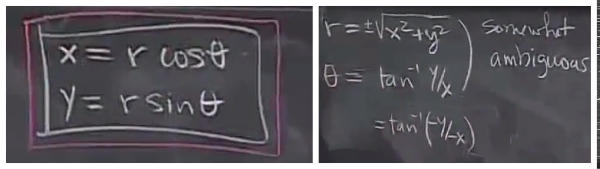 x = r cosθ
y = r sinθ
r = ±√x²+y²
θ = tan⁻¹ y/x
= tan⁻¹(-y/-x)
somewhat
ambiguous